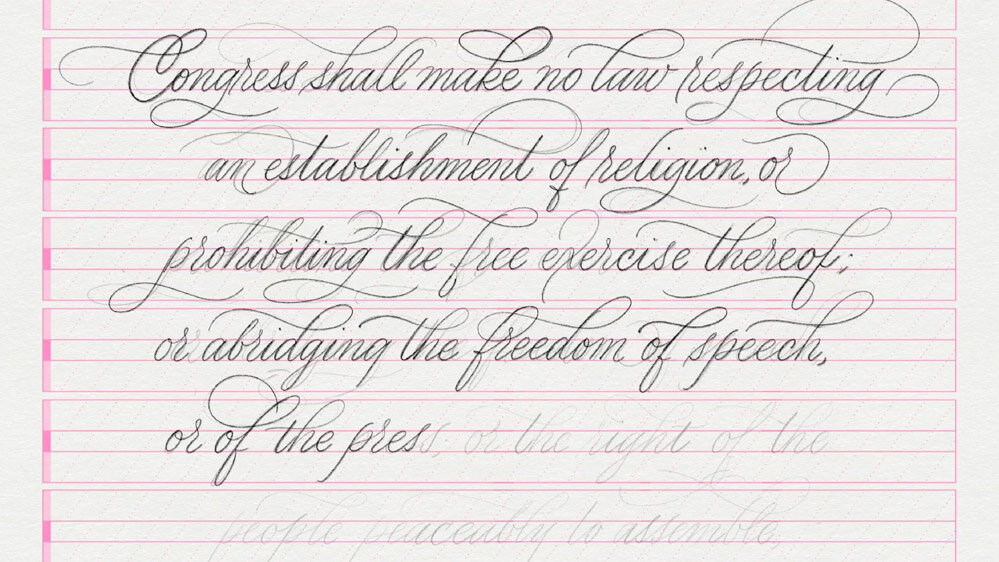 Congress shall make no law respecting
an establishment of religion, or
prohibiting the free exercise thereof;
or abridging the freedom of speech,
or of the press; or the right of the
people peaceably to assemble,